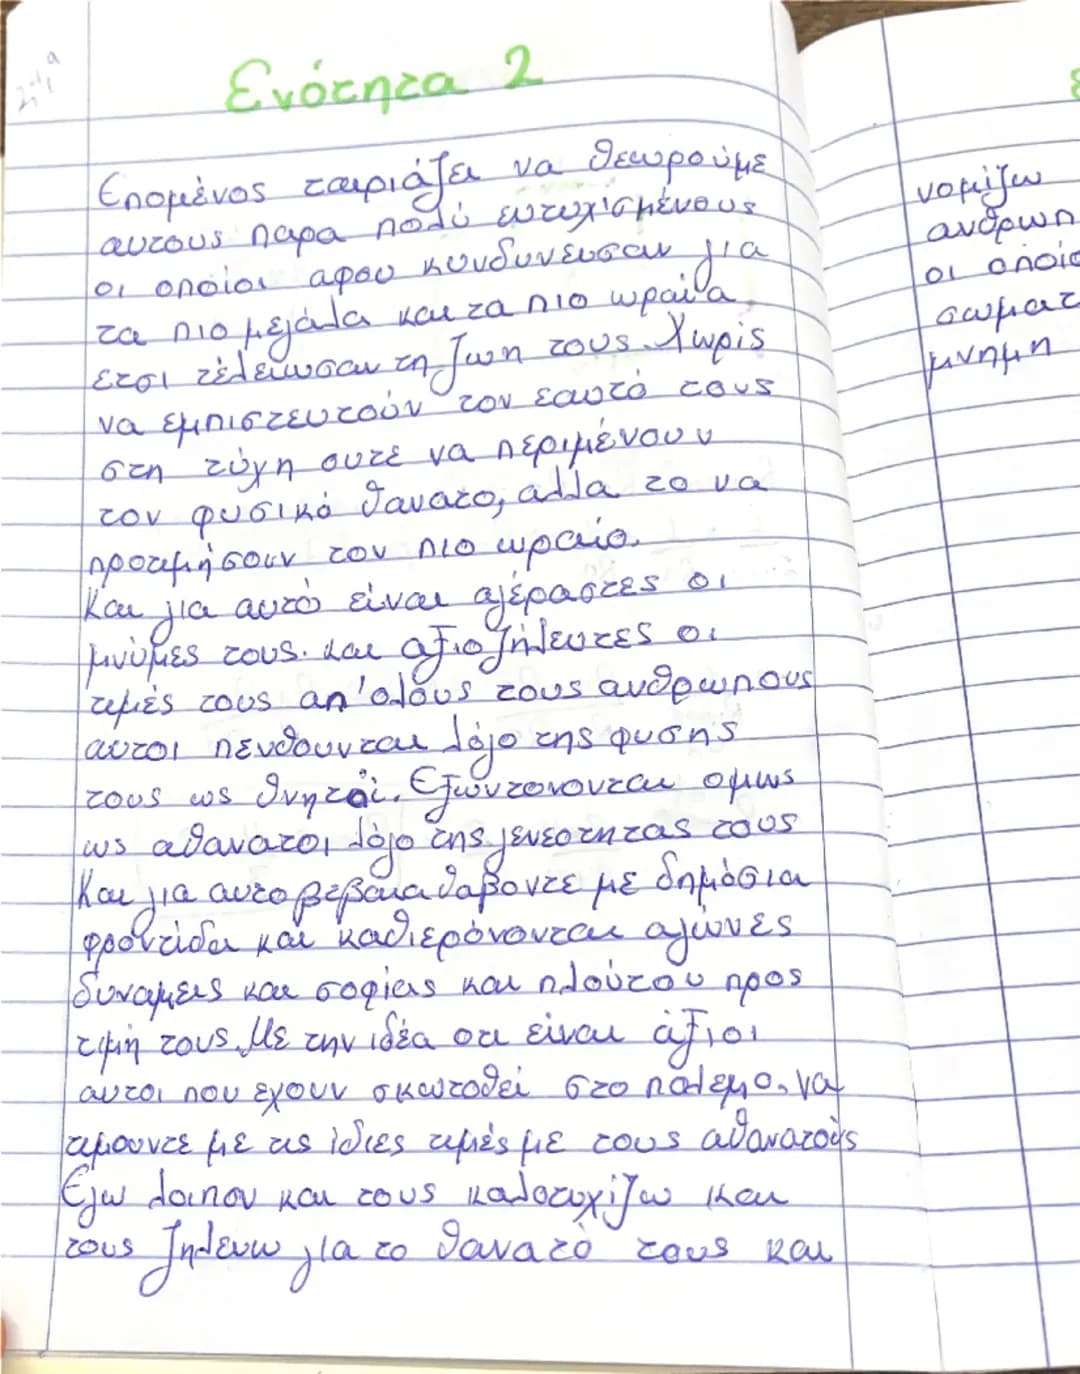 Ενότητα 2
Εποµένος ταιριάζει να θεωρούµε
αυτους παρα πολύ ευτυχισµένους
οι οποίοι αφου κινδυνευσαν για
τα πιο µεγάλα και τα πιο ωραία
ετσι τέλειωσαν τη ζωη τους. Χωρίς
να εµπιστευτούν τον εαυτό τους
στη τύχη ουτε να περιµένουν
τον φυσικό θανατο, αλλα το να
προτιµήσουν τον πιο ωραίο.
Και για αυτό είναι αγέραστες οι
µνύµες τους. και αξιοζήλευτες οι
τιµές τους απ'ολους τους ανθρωπους
αυτοι πενθουνται λόγο της φυσης
τους ως θνητοί. Εξυντονονται οµως
ως αθανατοι λόγο της γενεοτητας τους
Και για αυτο βεβαια θαβοντε µε δηµόσια
φροντίδα και καθιερόνονται αγώνες
δυναµεις και σοφίας και πλούτου προς
τιµή τους. Με την ιδέα οτι είναι άξιοι
αυτοι που εχουν σκωτοθεί στο πολεµο. να
τιµουντε µε τις ίδιες τιµές µε τους αθανατούς
Εγω λοιπον και τους καλοτυχίζω και
τους ζηλευω για το θανατό τους και
νοµίζω
ανθρωπ
οι οποίο
σωµατ
µνηµη